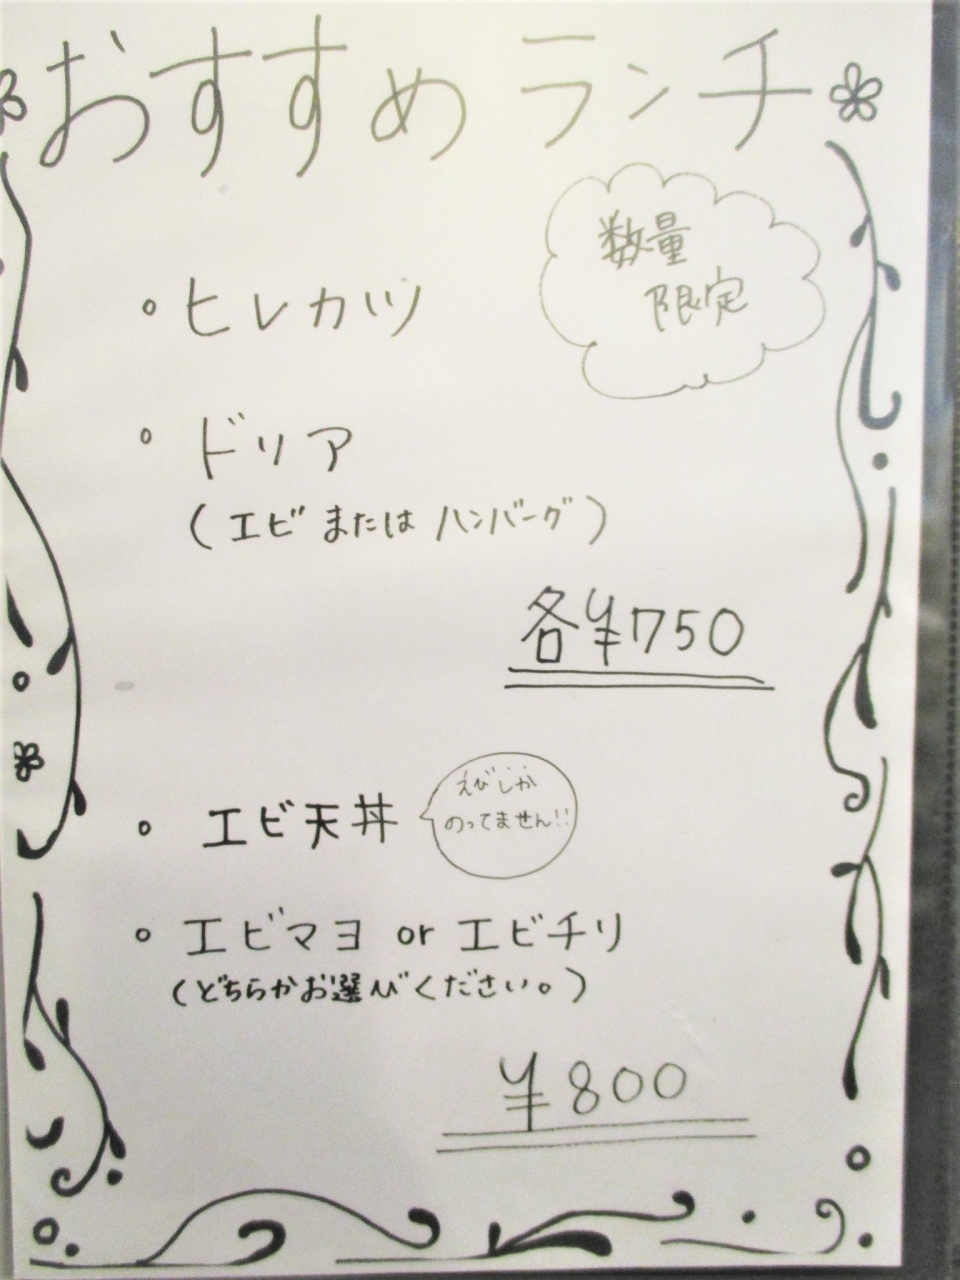 おすすめランチ
数量
限定
。ヒレカツ
。ドリア
(エビまたはハンバーグ)
各¥750
。エビ天丼
えびしか
のってません!!
。エビマヨ or エビチリ
(どちらかお選びください。)
¥800